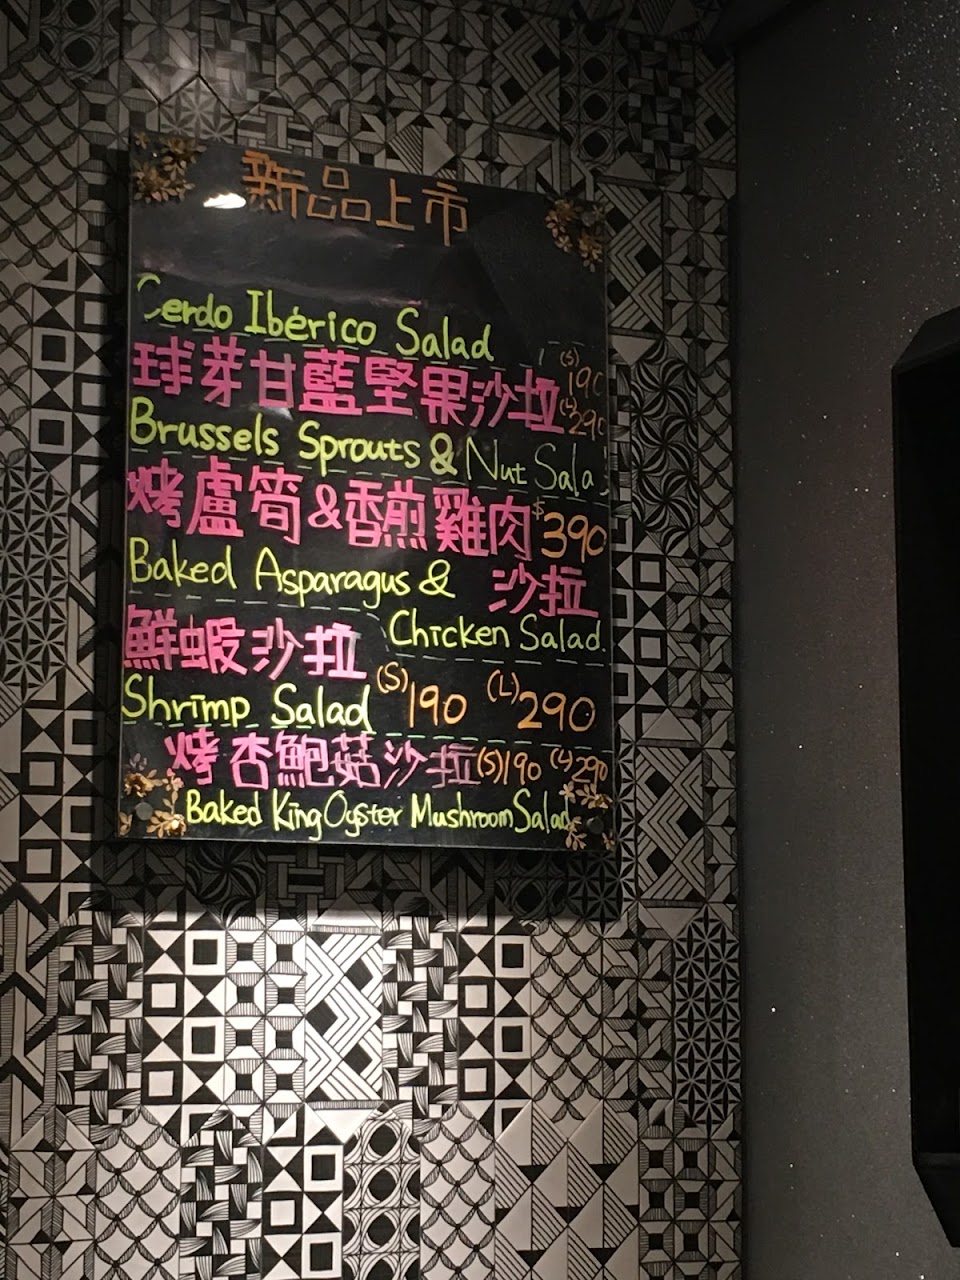 新品上市
Cerdo Ibérico Salad
球芽甘藍堅果沙拉 (S) 190
(L) 290
Brussels Sprouts & Nut Sala
烤盧筍&香煎雞肉 $390
沙拉
Baked Asparagus &
Chicken Salad
鮮蝦沙拉
Shrimp Salad (S) 190 (L) 290
烤杏鮑菇沙拉 (S) 190 (L) 290
Baked King Oyster Mushroom Salad